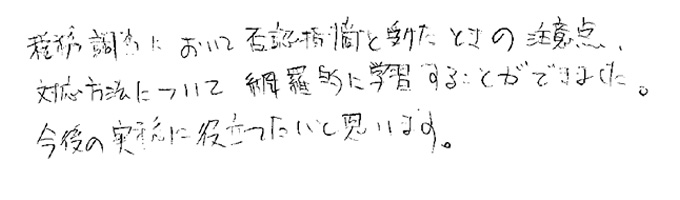 税務調査において否認指摘と受たときの注意点、
対応方法について網羅的に学習することができました。
今後の実務に役立つたいと思います。